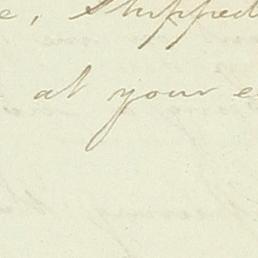 e, Shipped
at your e